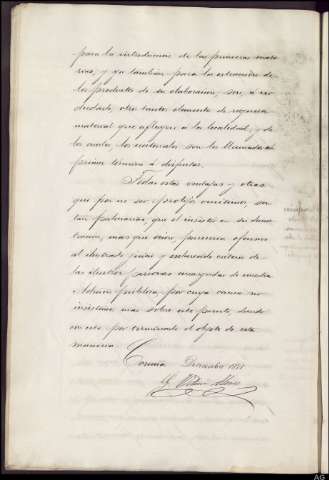 para la introduccion de las primeras mate
rias, y ya tambien para la extraccion de
los productos de su elaboracion, son, á no
dudarlo, otro tanto elemento de riqueza
material que afluyen a la localidad, y de
los cuales, los naturales son los llamados en
primer termino á disfrutar.
Todas estas ventajas y otras
que por no ser prolijo omitimos, son
tan palmarias, que el insistir en su demos
tracion, mas que otro pareceria ofensa
al ilustrado juicio y entendido criterio de
las ilustres personas encargadas de nuestra
Admon publica, por cuya causa no
insistimos mas sobre este punto, dando
con esto por terminado el objeto de esta
memoria.
Coruña Diciembre
AG